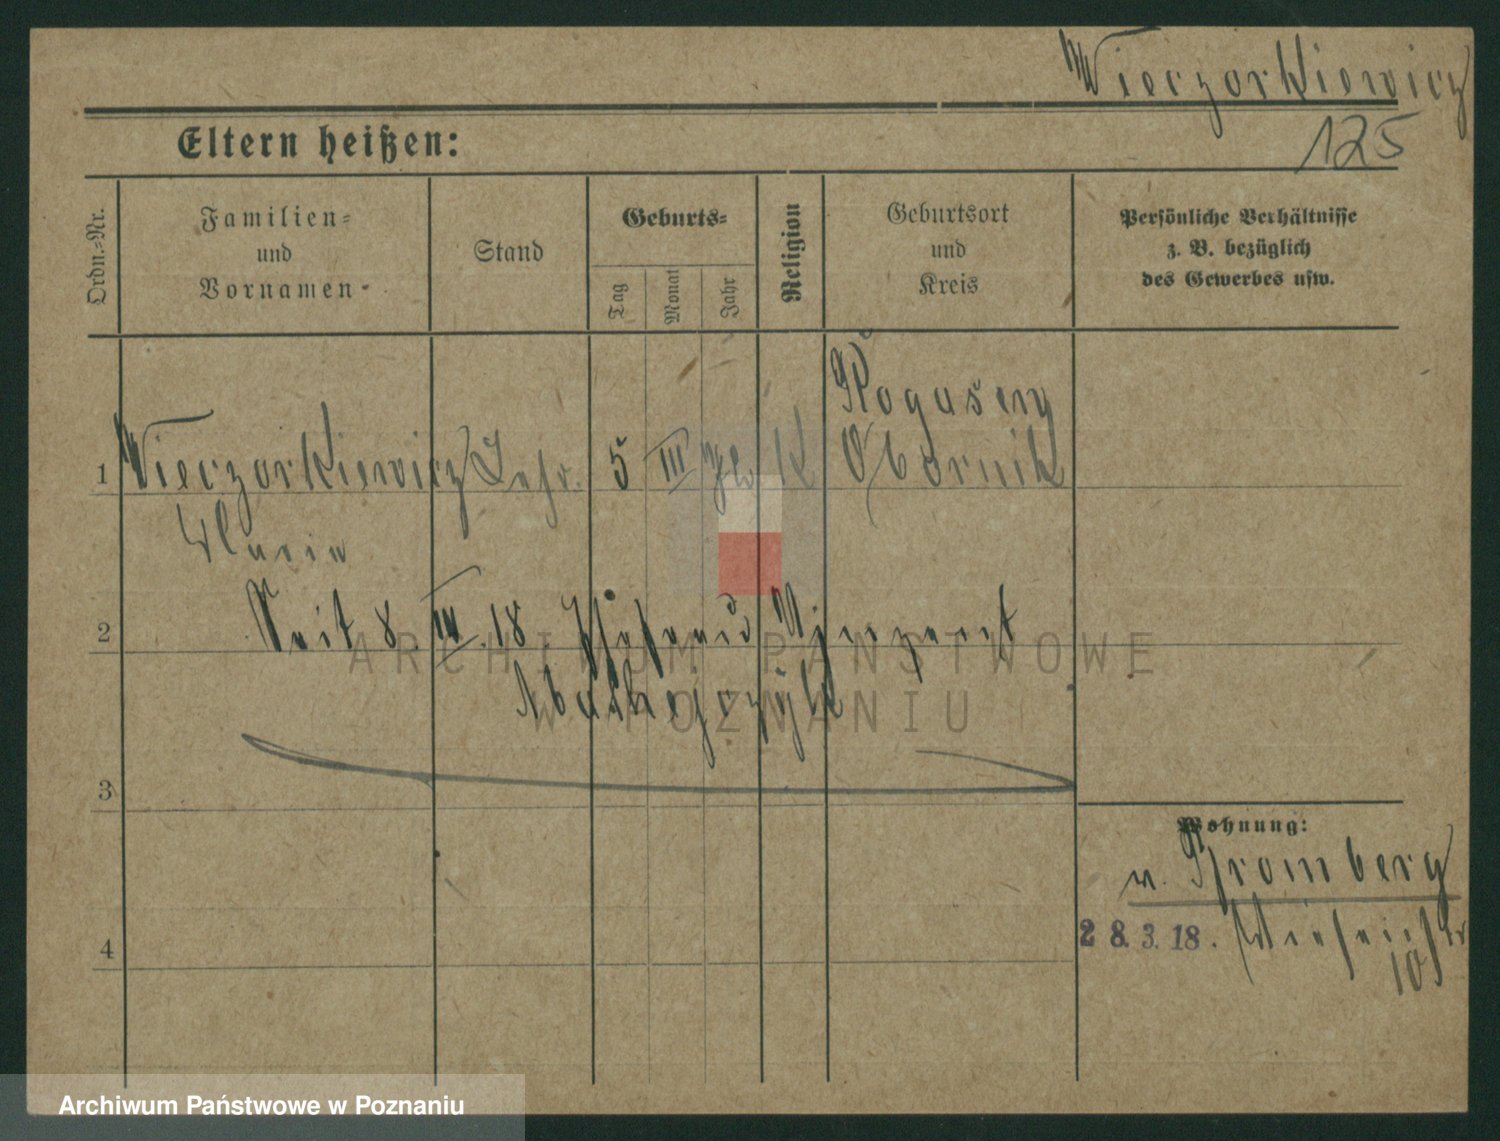 Wieczorkiewicz
125
Eltern heißen:
Ordn.=Nr.
Familien=
und
Vornamen
Stand
Geburts=
Tag
Monat
Jahr
Religion
Geburtsort
und
Kreis
Persönliche Verhältnisse
z. B. bezüglich
des Gewerbes usw.
Rogusen
1 Wieczorkiewicz 5 III K Obornik
Maria
2 Seit 8. 18.
3
Wohnung:
v. Bromberg
28.3.18.
4
10
ARCHIWUM PAŃSTWOWE
W POZNANIU
Archiwum Państwowe w Poznaniu